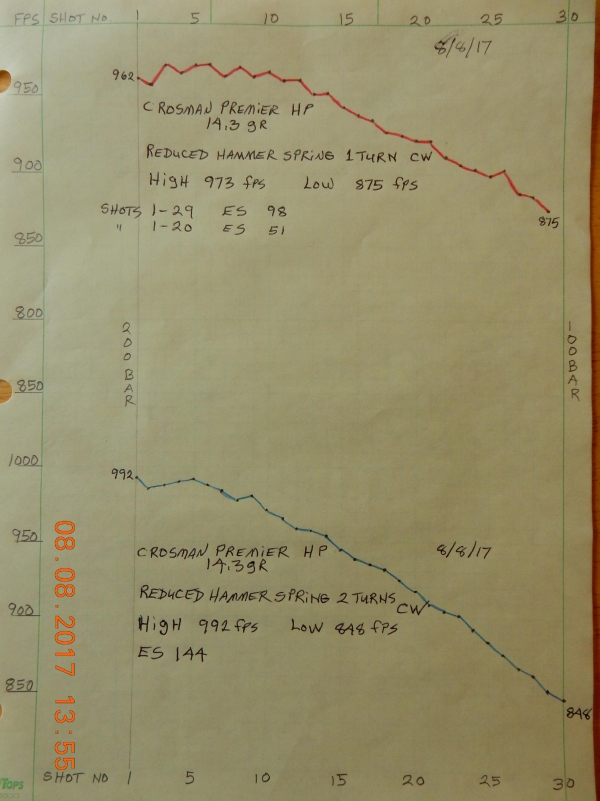 FPS SHOT NO 1 5 10 15 20 25 30
8/8/17
962
950
CROSMAN PREMIER HP
14.3 GR
900
REDUCED HAMMER SPRING 1 TURN CW
HIGH 973 fps LOW 875 fps
SHOTS 1-29 ES 98
" 1-20 ES 51
875
850
800
200 BAR
100 BAR
850
1000
992
950
CROSMAN PREMIER HP
14.3 GR
8/8/17
REDUCED HAMMER SPRING 2 TURNS CW
900
HIGH 992 fps LOW 848 fps
ES 144
850
848
08.08.2017 13:55
TOPS
SHOT NO 1 5 10 15 20 25 30